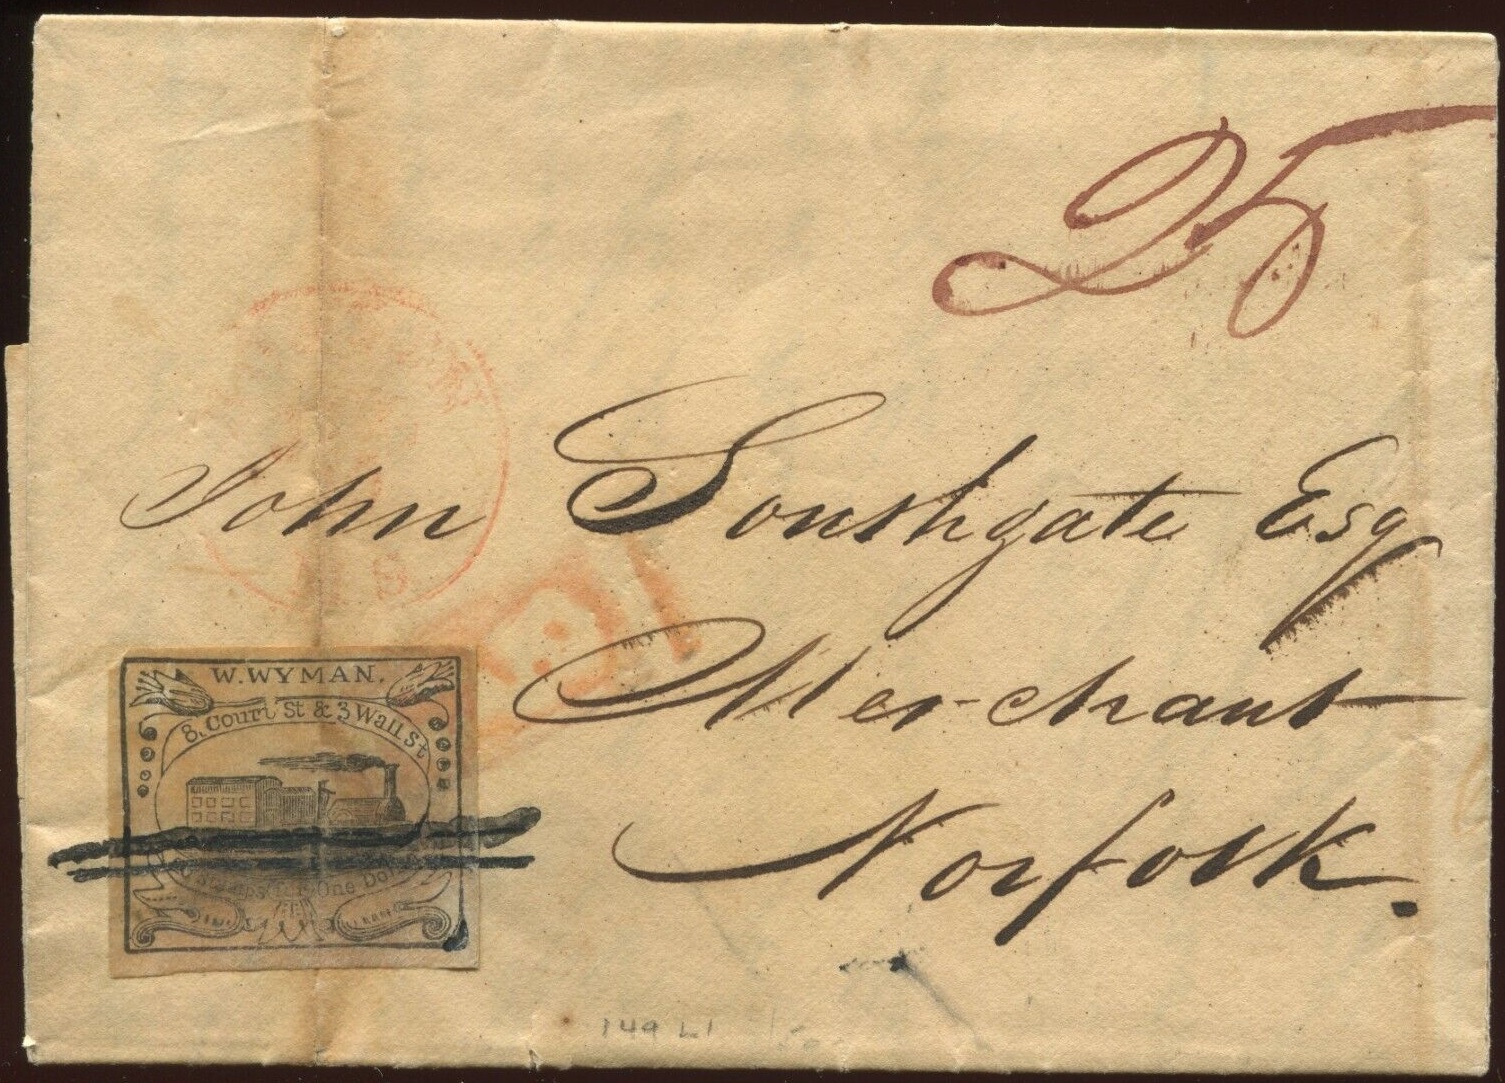 25
John Southgate Esq
Merchant
Norfolk.
W. WYMAN.
8, Court St & 3 Wall St
One
149 L1